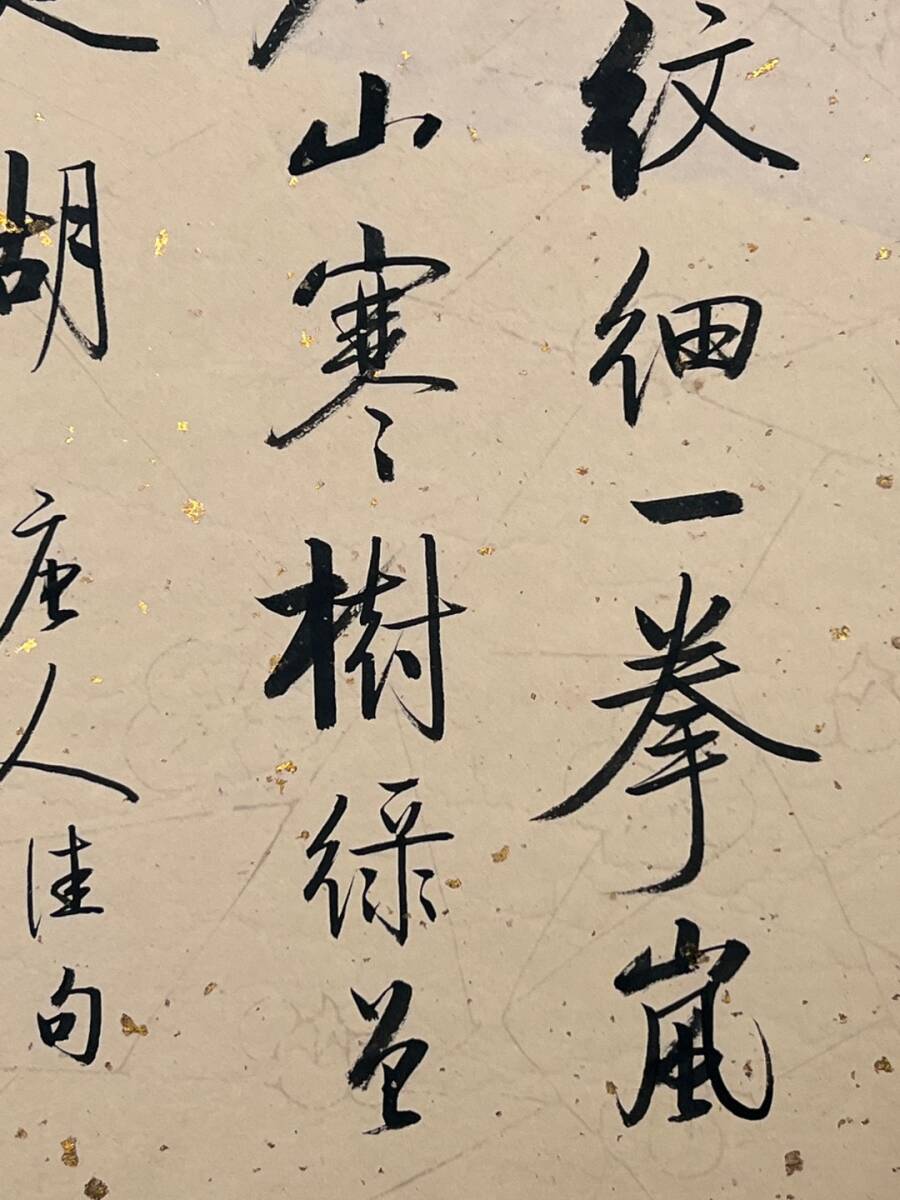 紋細一拳嵐
山寒樹綠曾
胡
唐人佳句